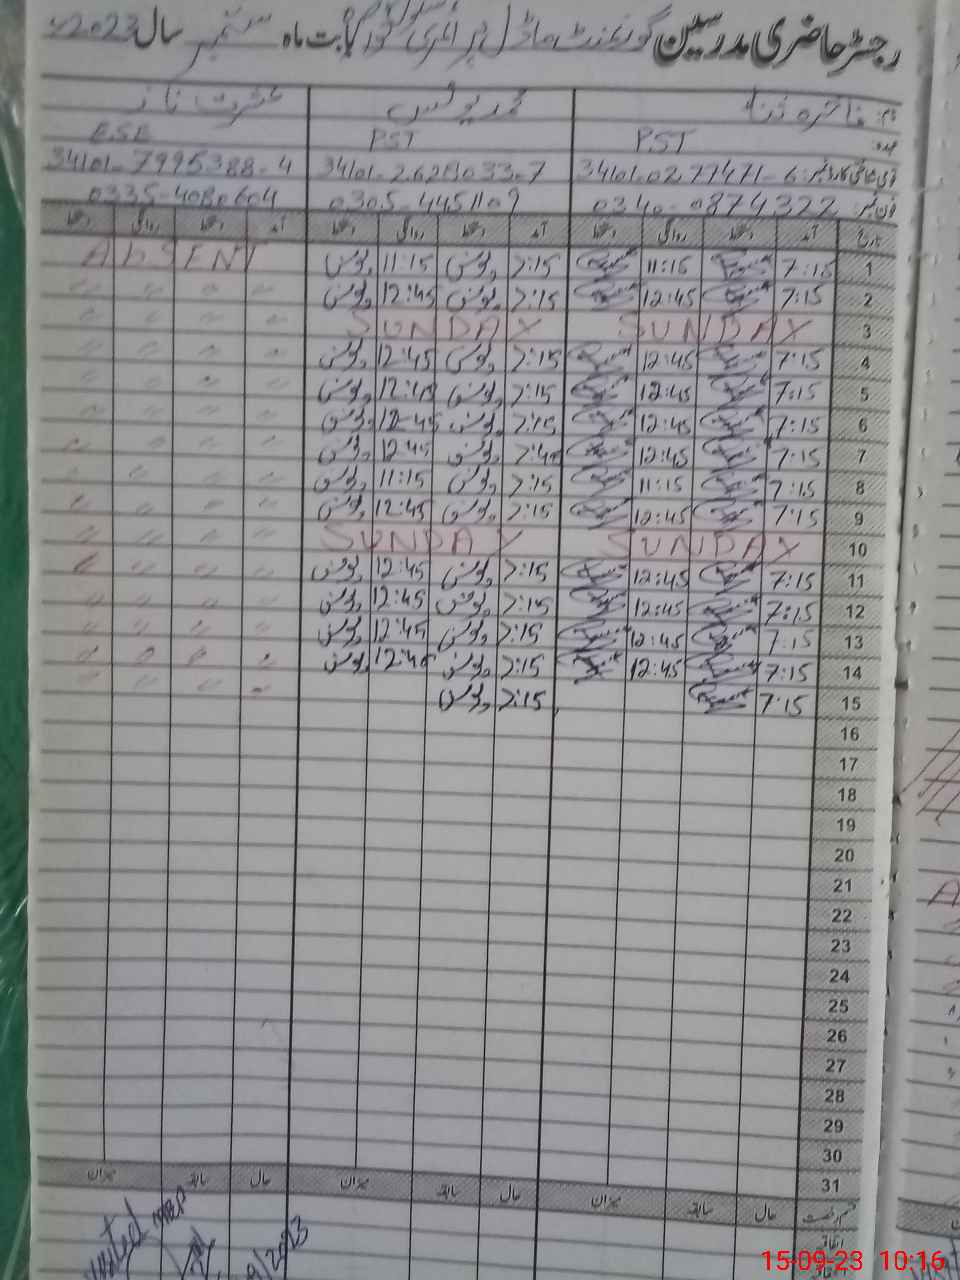 رجسٹر حاضری مدرسین گورنمنٹ ماڈل پرائمری سکول بابت ماہ ستمبر سال 2023ء
نام: فائزہ ثناء محمد یونس عشرت ناز
عہدہ: PST PST ESE
قومی شناختی کارڈ نمبر: 34101-0277471-6 34101-2628033-7 34101-7995388-4
فون نمبر: 0340-0874322 0305-4451109 0335-4080604
تاریخ آمد دستخط روانگی دستخط آمد دستخط روانگی دستخط آمد دستخط روانگی دستخط
1 7:15 11:15 7:15 یونس 11:15 یونس ABSENT
2 7:15 12:45 7:15 یونس 12:45 یونس " " " "
3 SUNDAY SUNDAY " " " "
4 7:15 12:45 7:15 یونس 12:45 یونس " " " "
5 7:15 12:45 7:15 یونس 12:45 یونس " " " "
6 7:15 12:45 7:15 یونس 12-45 یونس " " " "
7 7:15 12:45 یونس 12:45 یونس " " " "
8 7:15 11:15 7:15 یونس 11:15 یونس " " " "
9 7:15 12:45 7:15 یونس 12:45 یونس " " " "
10 SUNDAY SUNDAY " " " "
11 7:15 12:45 7:15 یونس 12:45 یونس " " " "
12 7:15 12:45 7:15 یونس 12:45 یونس " " " "
13 7:15 12:45 7:15 یونس 12:45 یونس " " " "
14 7:15 12:45 7:15 یونس 12:45 یونس " " " "
15 7:15 7:15 یونس " " " "
16
17
18
19
20
21
22
23
24
25
26
27
28
29
30
31
حال سابقہ میزان حال سابقہ میزان حال سابقہ میزان
قسم رخصت
اتفاقیہ
15-09-23 10:16